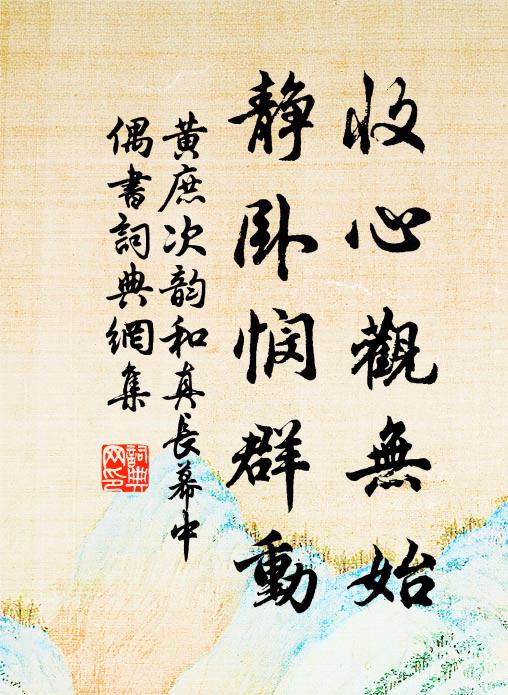 收心觀無始
靜臥悯群動
黃庶次韵和真長幕中
偶書詞典網集
詞典
网印